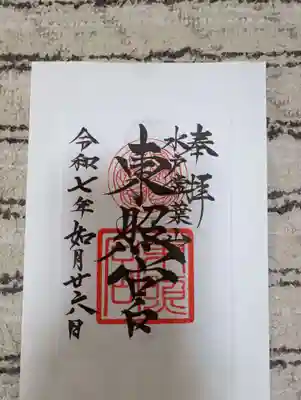 奉拝
水戸常葉山
東照宮
令和七年如月廿六日